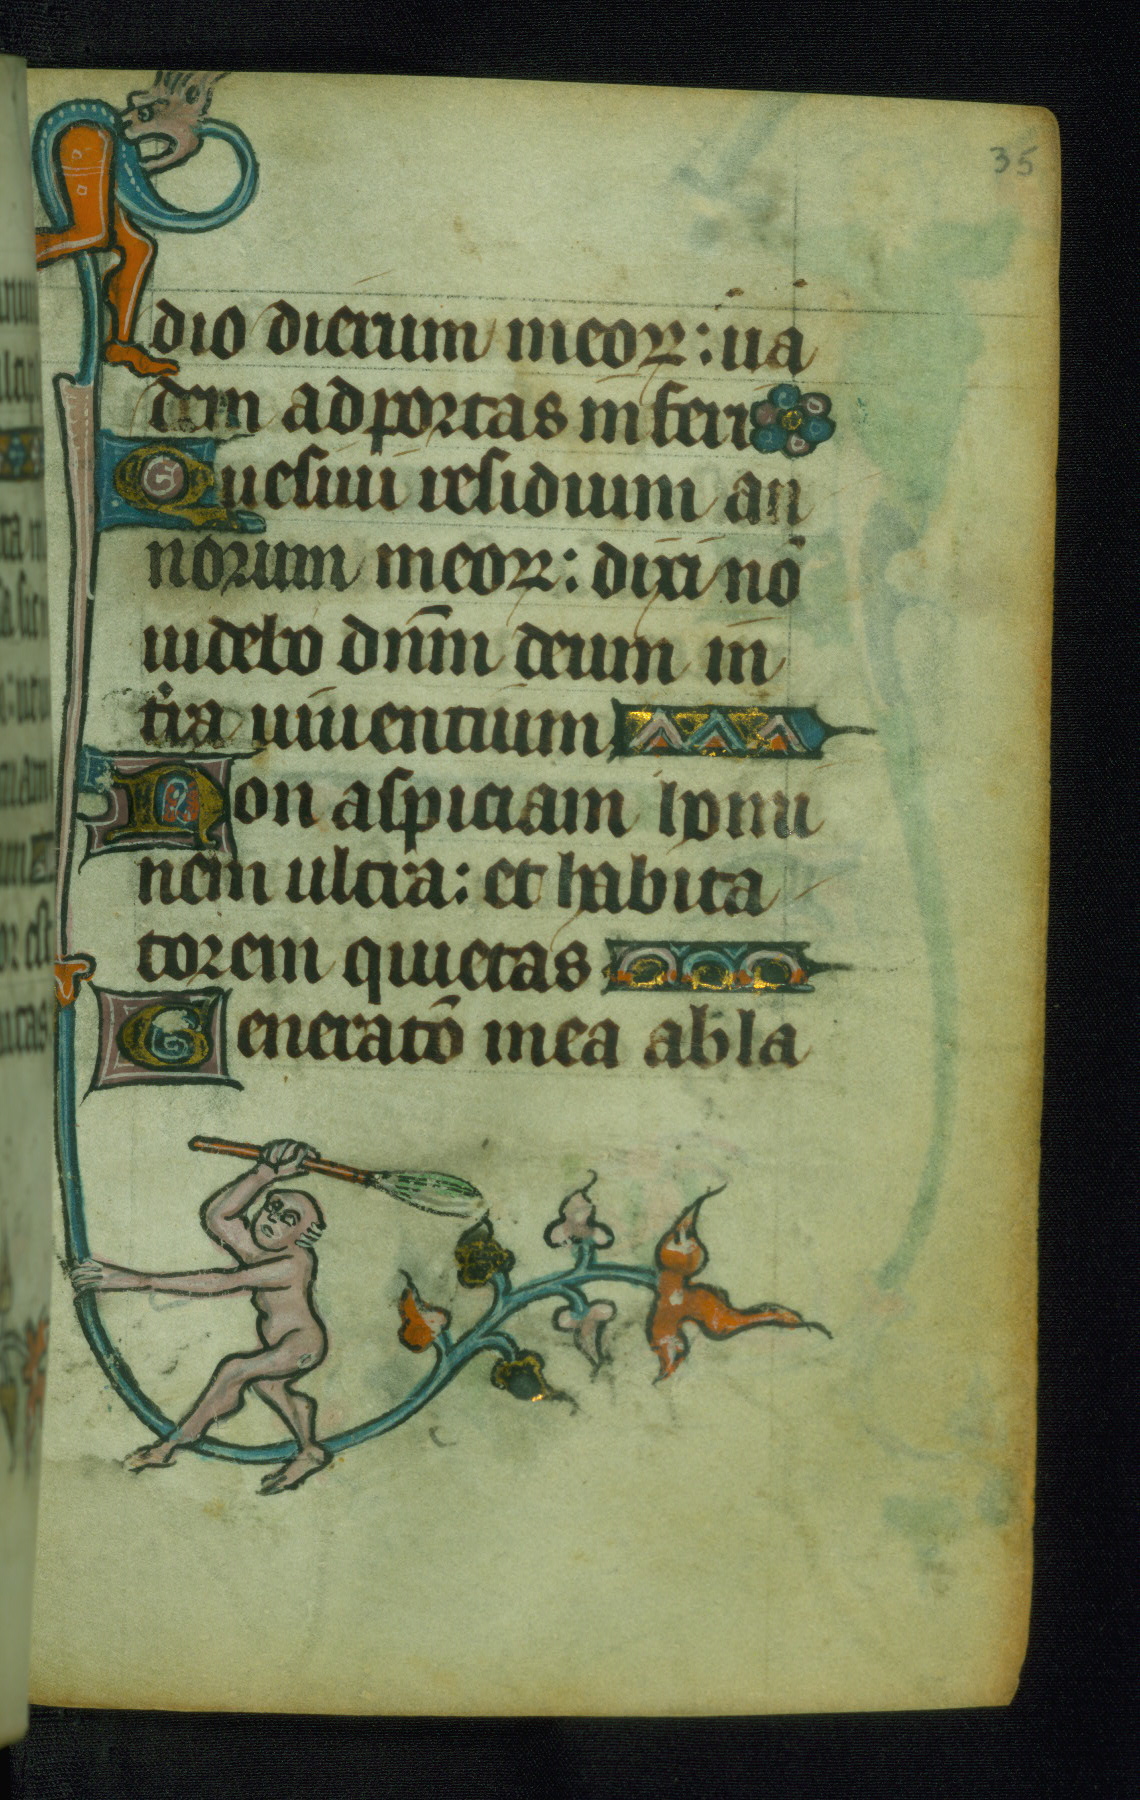 35
dio dierum meoꝝ: ua
dem ad portas inferi
Quesiui residuum an
norum meoꝝ: dixi nō
uidebo dn̄m deum in
t̄ra uiuentium
Non aspiciam homi
nem ultra: et habita
torem quietas
Generatō mea abla